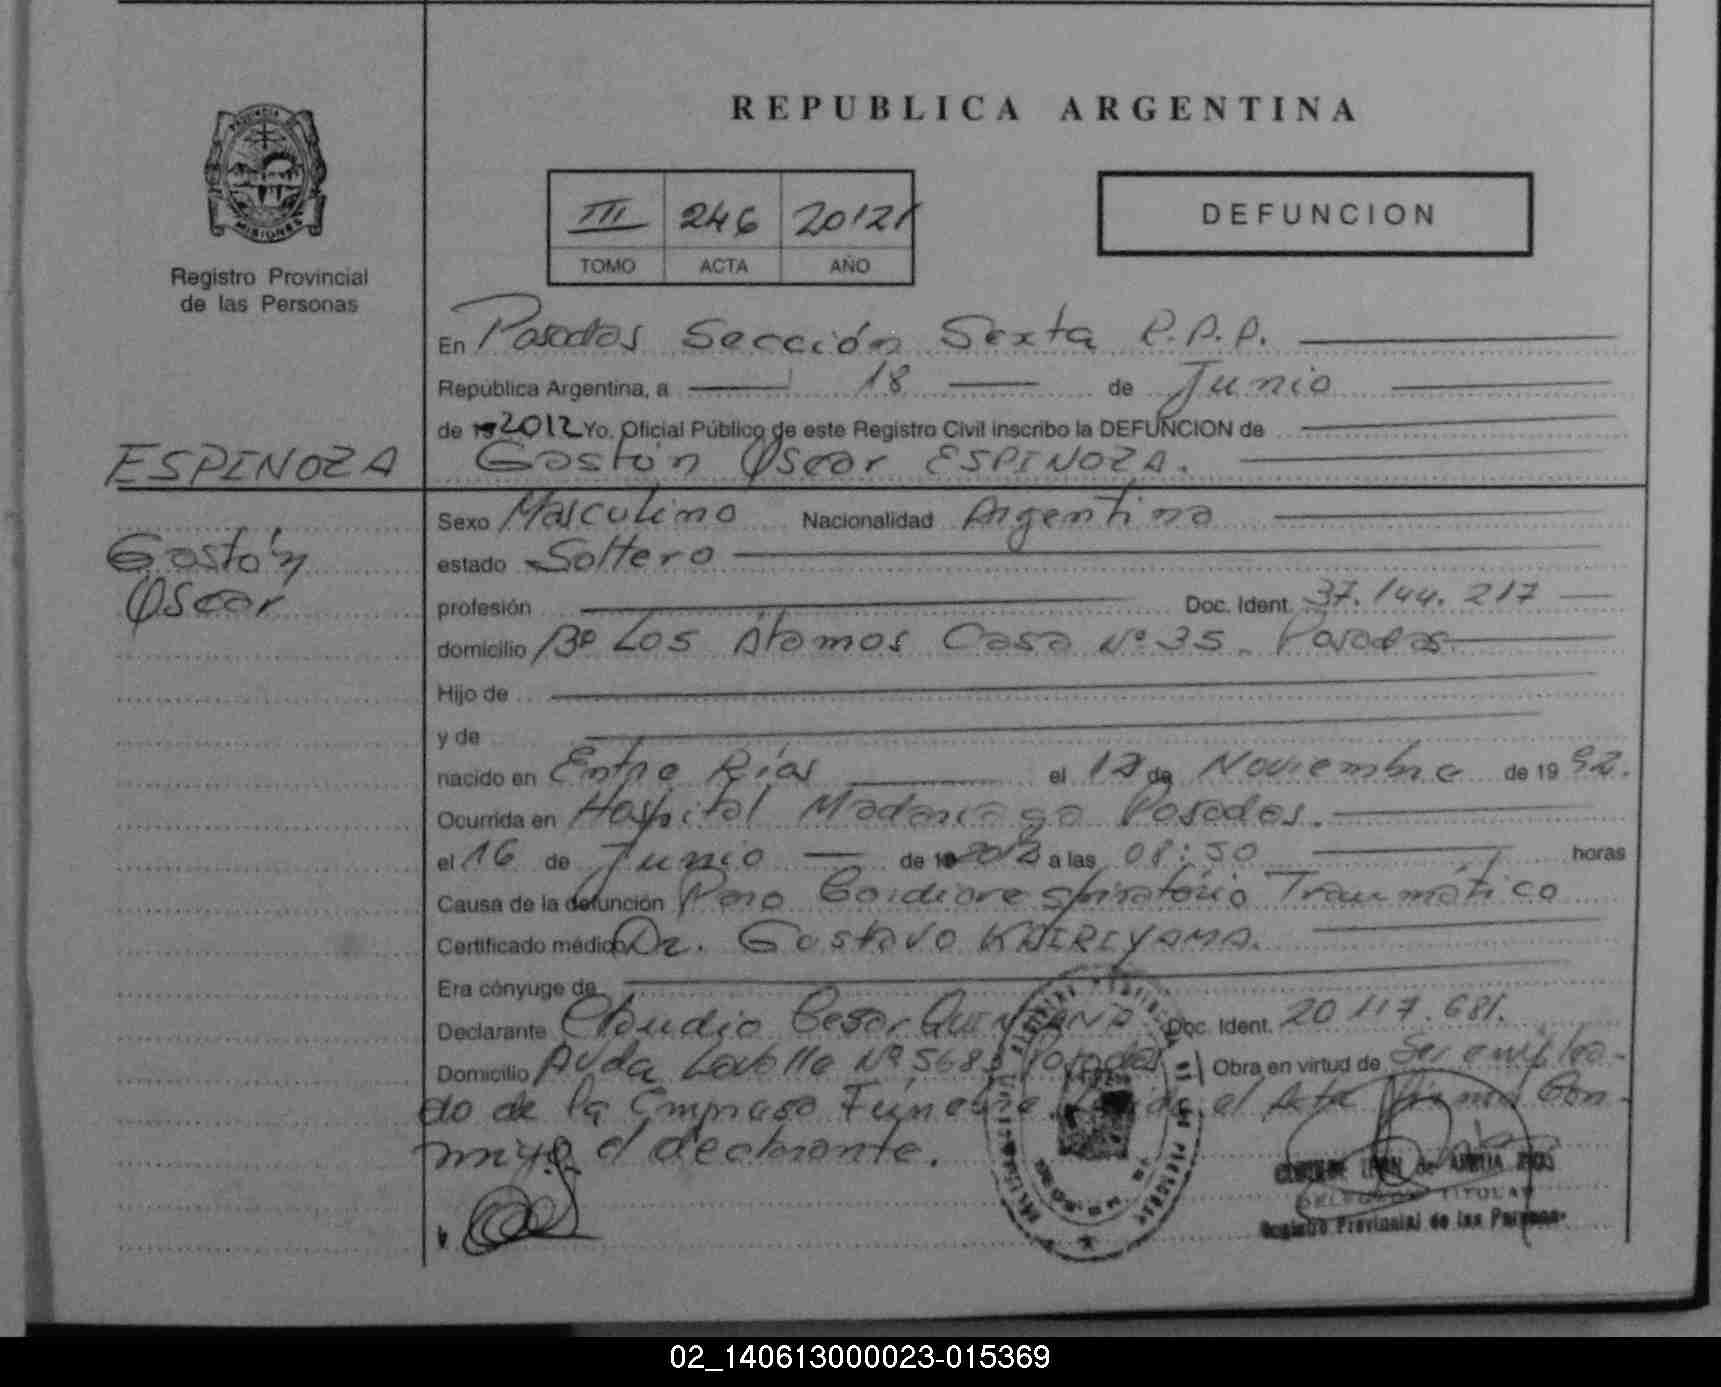 REPUBLICA ARGENTINA
PROVINCIA
MISIONES
Registro Provincial
de las Personas
III 246 2012
TOMO ACTA AÑO
DEFUNCION
En Posadas Sección Sexta P.P.P.
República Argentina, a 18 de Junio
de 2012 Yo, Oficial Público de este Registro Civil inscribo la DEFUNCION de
Gastón Oscar ESPINOZA.
ESPINOZA
Gastón
Oscar
Sexo Masculino Nacionalidad Argentina
estado Soltero
profesión Doc. Ident. 37.144.217
domicilio Bº Los Álamos Casa Nº 35. Posadas
Hijo de
y de
nacido en Entre Ríos el 12 de Noviembre de 1992.
Ocurrida en Hospital Madariaga Posadas.
el 16 de Junio de 2012 a las 08:50 horas
Causa de la defunción Paro Cardiorespiratorio Traumático
Certificado médico Dr. Gustavo
Era cónyuge de
Declarante Claudio Cesar QUINTANA Doc. Ident. 20 117.681.
Domicilio Avda Lavalle Nº 5683 Posadas Obra en virtud de Ser emplea-
do de la Empresa Fúnebre. el Acta firma Con-
migo el declarante.
DELEGADA TITULAR
Registro Provincial de las Personas
02_140613000023-015369